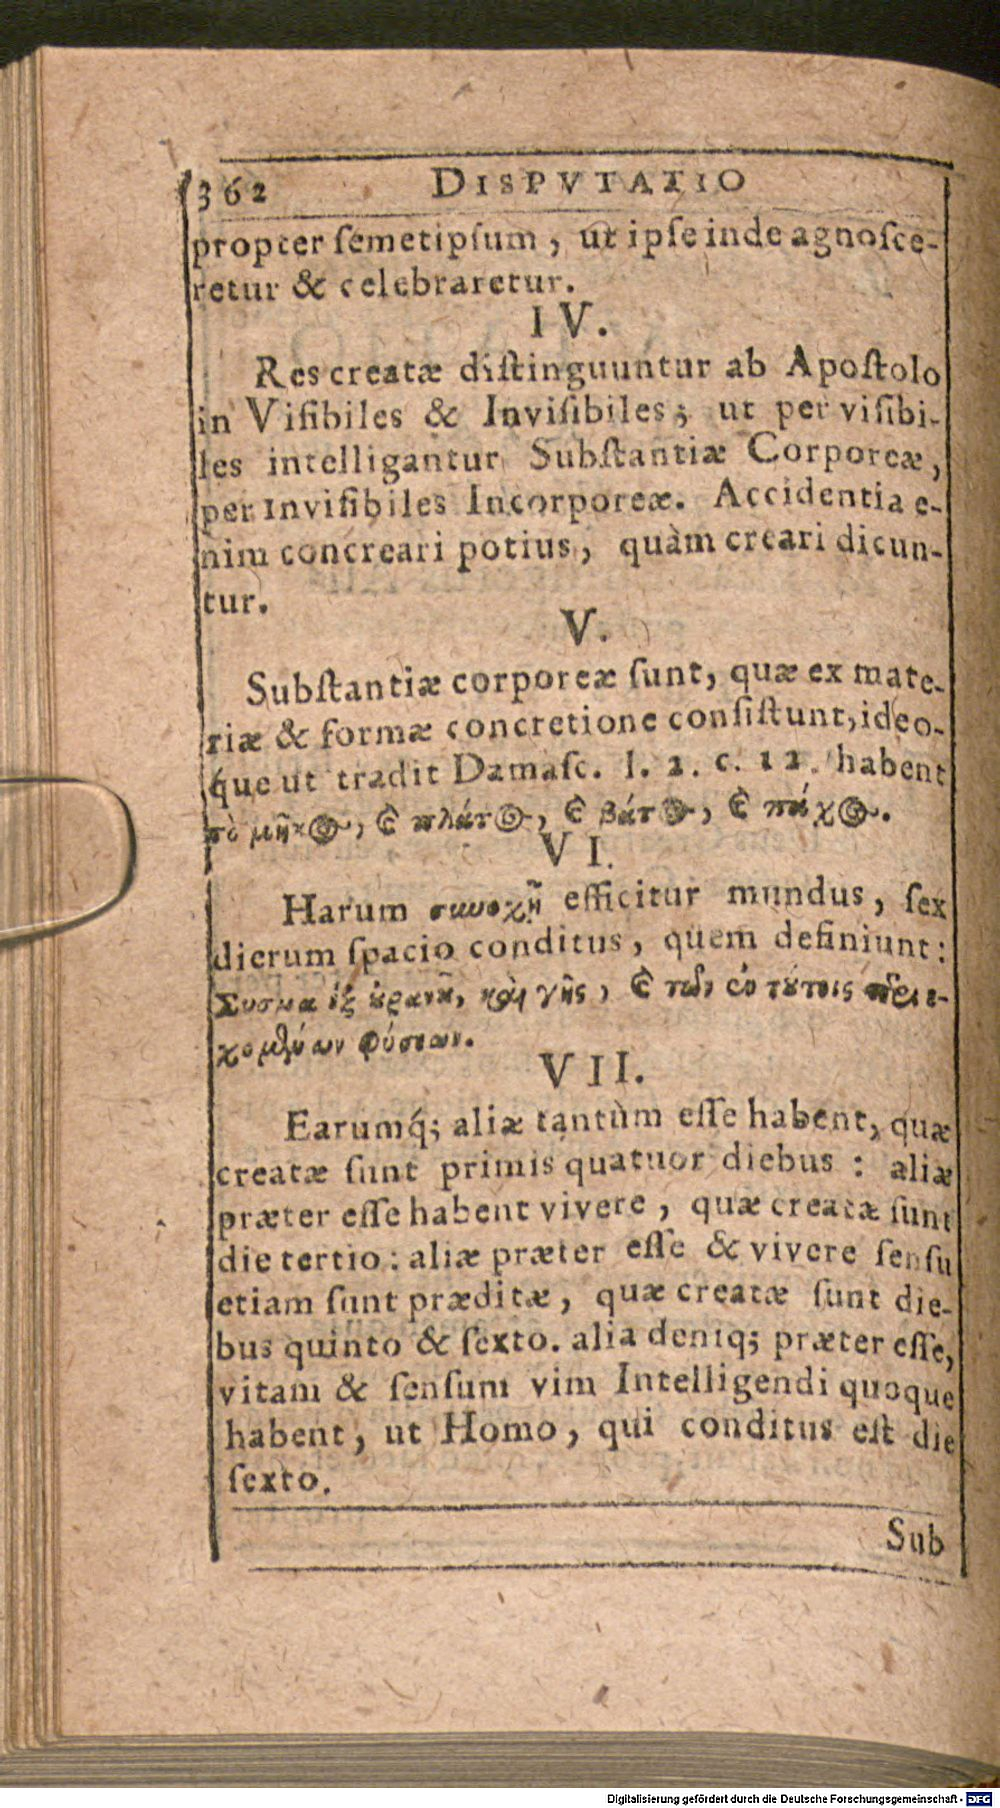 362 DISPVTATIO
propter ſemetipſum, ut ipſe inde agnoſce-
retur & celebraretur.
IV.
Res creatæ diſtinguuntur ab Apoſtolo
in Viſibiles & Inviſibiles; ut per viſibi-
les intelligantur Subſtantiæ Corporeæ,
per Inviſibiles Incorporeæ. Accidentia e-
nim concreari potius, quàm creari dicun-
tur.
V.
Subſtantiæ corporeæ ſunt, quæ ex mate-
riæ & formæ concretione conſiſtunt, ideo-
que ut tradit Damaſc. l. 2. c. 12. habent
τὸ μῆκος, ϗ πλάτος, ϗ βάτος, ϗ πάχος.
VI.
Harum συνοχῇ efficitur mundus, ſex
dierum ſpacio conditus, quem definiunt:
Συσμα ἐξ ȣ̓ρανȣ͂, καὶ γῆς, ϗ τῶν ἐν τȣ́τοις περιε-
χομένων φύσεων.
VII.
Earumq́; aliæ tantùm eſſe habent, quæ
creatæ ſunt primis quatuor diebus: aliæ
præter eſſe habent vivere, quæ creatæ ſunt
die tertio: aliæ præter eſſe & vivere ſenſu
etiam ſunt præditæ, quæ creatæ ſunt die-
bus quinto & ſexto. alia deniq; præter eſſe,
vitam & ſenſum vim Intelligendi quoque
habent, ut Homo, qui conditus eſt die
ſexto.
Sub
Digitalisierung gefördert durch die Deutsche Forschungsgemeinschaft - DFG